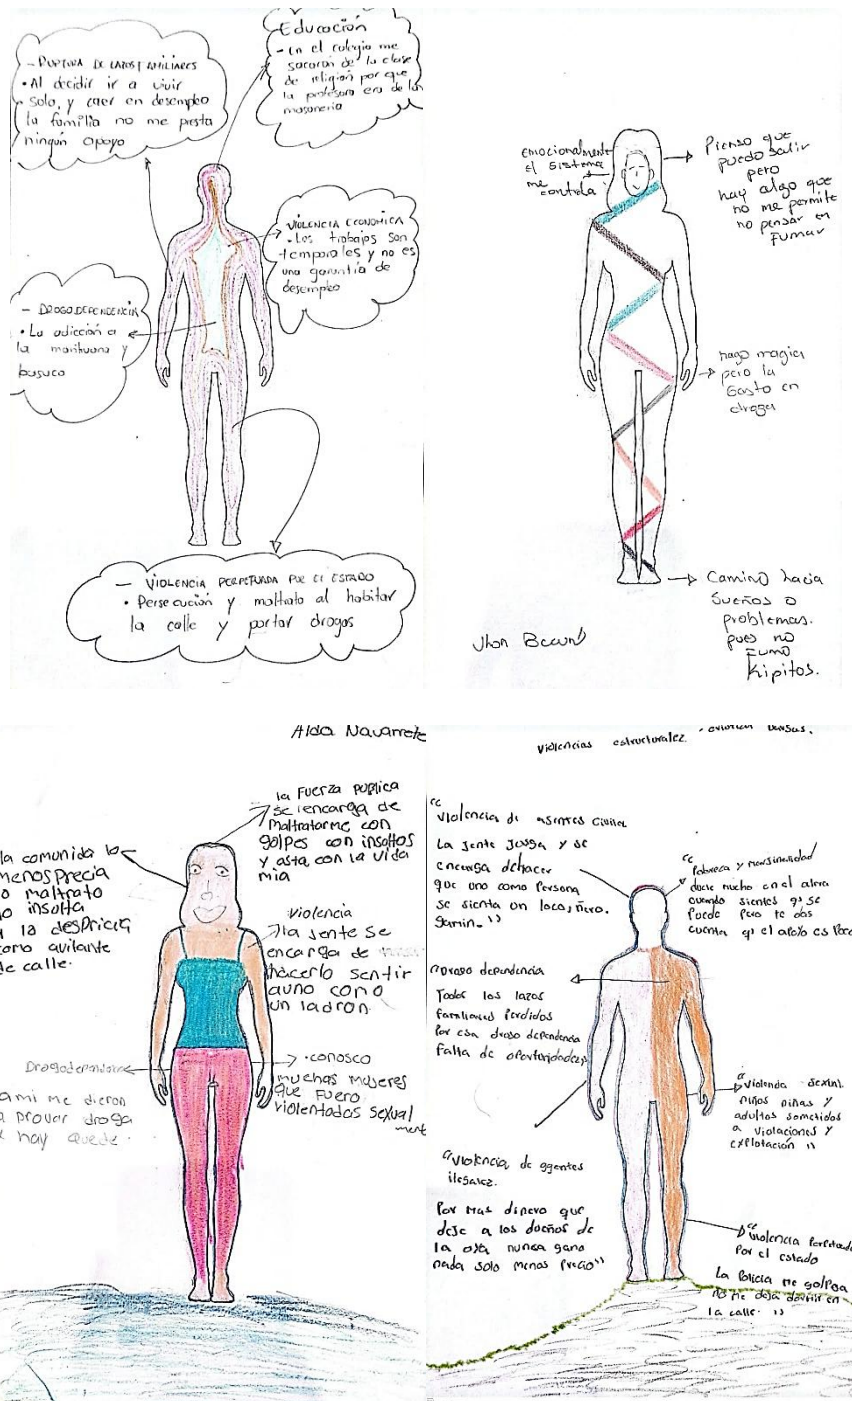 - RUPTURA DE LAZOS FAMILIARES
• Al decidir ir a vivir
solo, y caer en desempleo
la familia no me presta
ningún apoyo
Educación
- En el colegio me
sacaron de la clase
de religión por que
la profesora era de la
masoneria
VIOLENCIA ECONOMICA
• Los trabajos son
temporales y no es
una garantía de
desempleo
- DROGODEPENDENCIA
• La adicción a
la marihuana y
basuco
- VIOLENCIA PERPETUADA POR EL ESTADO
• Persecución y maltrato al habitar
la calle y portar drogas
emocionalmente
el sistema
me controla
Pienso que
puedo salir
pero
hay algo que
no me permite
no pensar en
Fumar
hago magia
pero la
Gasto en
droga
Camino hacia
Sueños o
problemas.
pues no
Fumo
Kipitos.
Jhon
Alda Navarrete
la Fuerza publica
se encarga de
maltratarme con
golpes con insoltos
y asta con la vida
mia
la comunida lo
menosprecia
o maltrato
o insolta
a la despricia
como avitante
de calle.
violencia
la jente se
encarga de
hacerlo sentir
auno como
un ladron
Drogodependencia
ami me dieron
a provar droga
hay quede.
• conosco
muchas mujeres
que fuero
violentadas sexual
mente
violencias estructuralez.
"violencia de agentes civiles
La jente Jusga y se
encarga de hacer
que uno como Persona
se sienta un loco, ñero.
gamin."
"Pobreza y marginalidad
duele mucho en el alma
cuando sientes q se
Puede pero te das
cuenta q el apoyo es Poco
"Drogo dependencia
Todos los lazos
familiares Perdidos
Por esa drogo dependencia
falta de oportunidades
"violencia sexual
niños niñas y
adultos sometidos
a violaciones y
explotación"
"violencia de agentes
ilegalez.
Por mas dinero que
deje a los dueños de
la olla nunca gano
nada solo menos Precio"
"violencia Perpetuada
Por el estado
La Policia me golpea
no me deja dormir en
la calle."